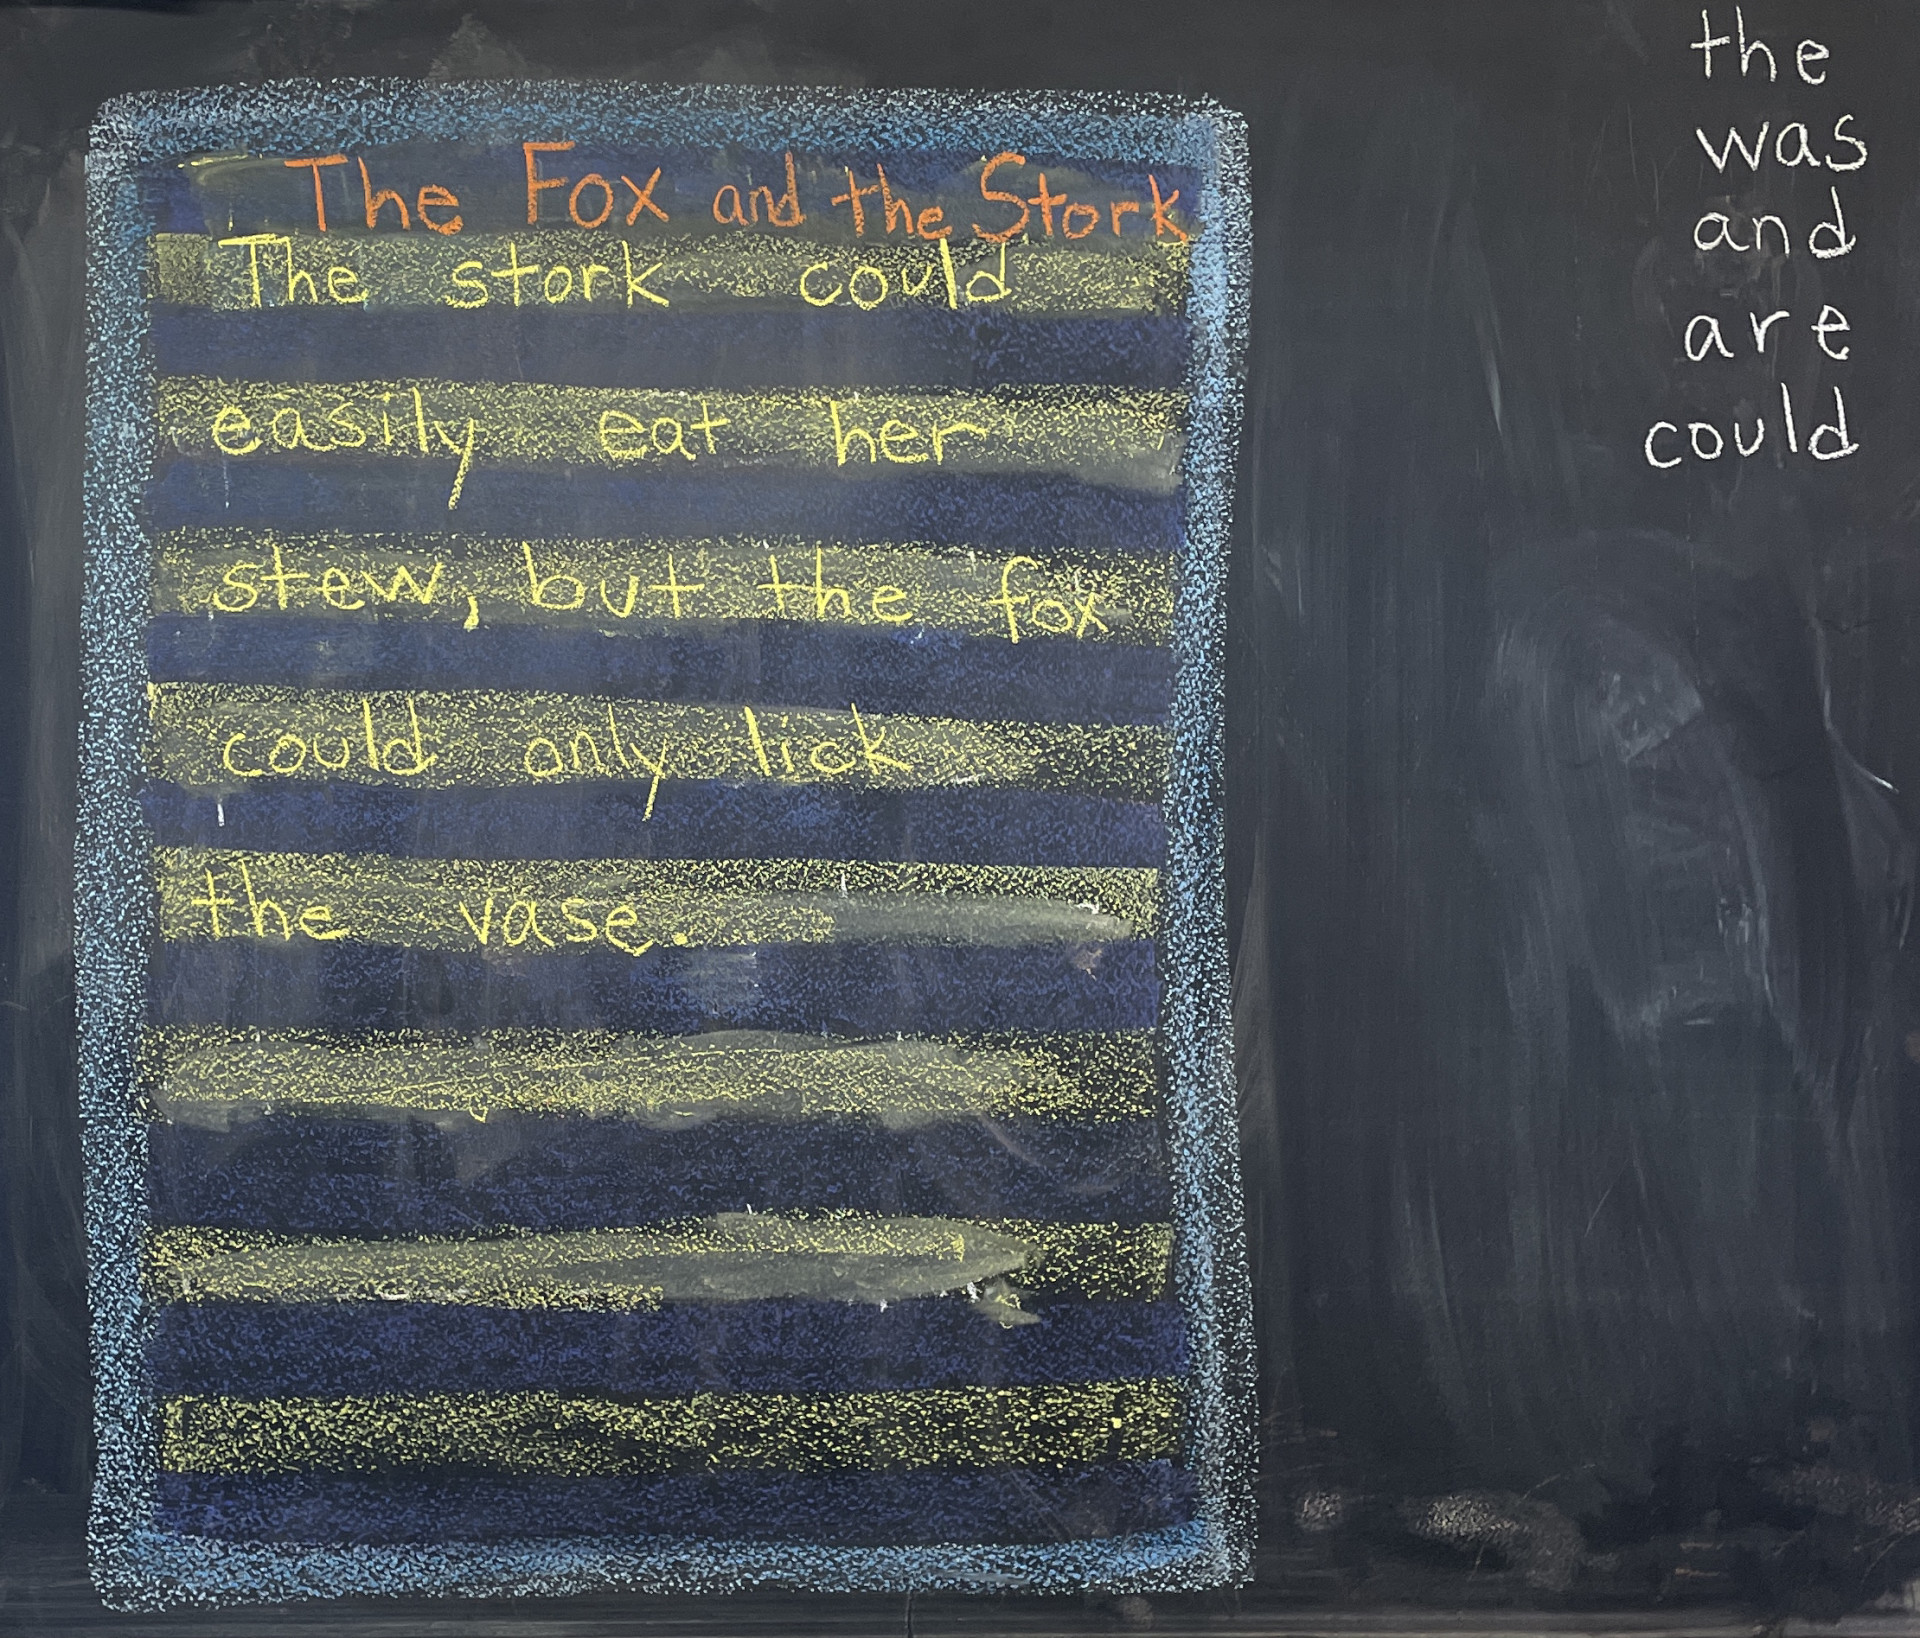 The Fox and the Stork
The stork could
easily eat her
stew, but the fox
could only lick
the vase.
the
was
and
are
could